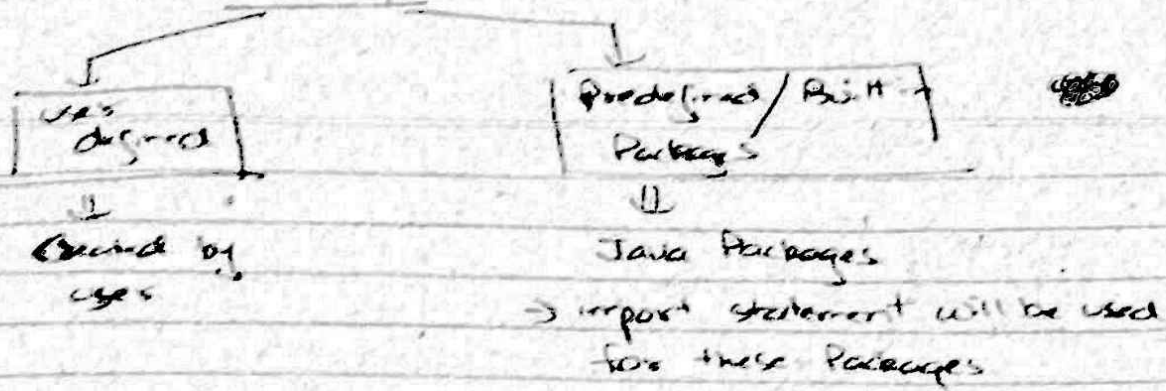 user
defined
Predefined / Built in
Packages
Created by
user
Java Packages
→ import statement will be used
for these Packages